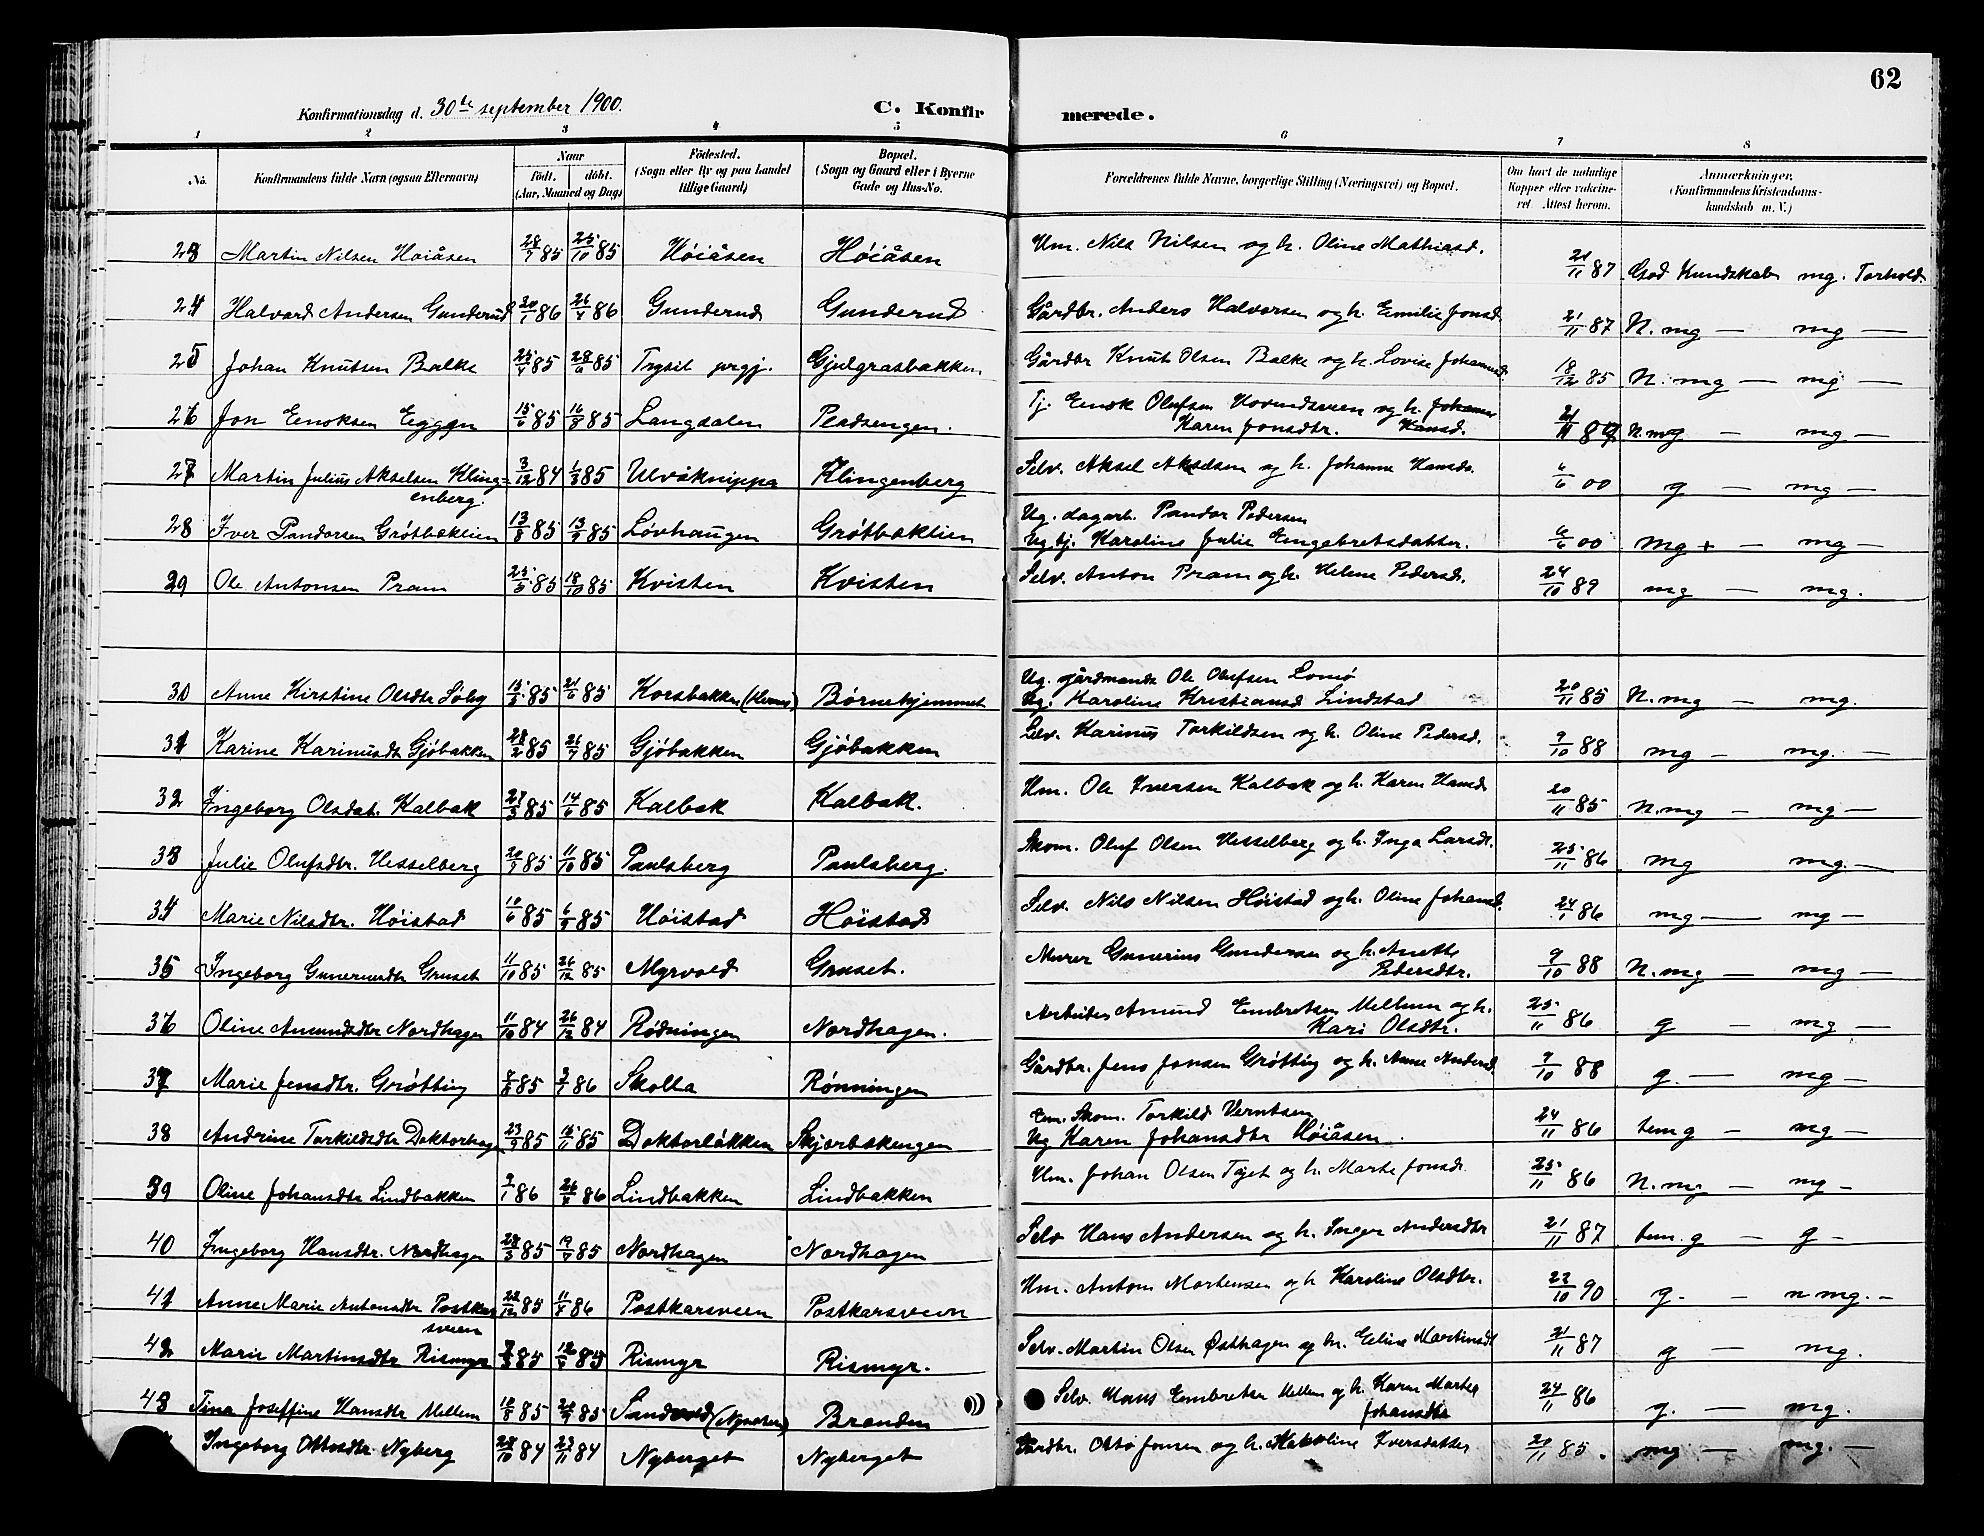 62
Konfirmationsdag d. 30te september 1900.
C. Konfir
merede.
1 2 3 4 5 6 7 8
No. Konfirmandens fulde Navn (ogsaa Efternavn) Naar født. døbt. (Aar, Maaned og Dag) Födested. (Sogn eller By og paa Landet tillige Gaard) Bopæl. (Sogn og Gaard eller i Byerne Gade og Hus-No. Forældrenes fulde Navne, borgerlige Stilling (Næringsvei) og Bopæl. Om havt de naturlige Kopper eller vakcineret. Attest herom. Anmærkninger. (Konfirmandens Kristendomskundskab m. V.)
23 Martin Nilsen Høiåsen 28/7 85 25/10 85 Høiåsen Høiåsen Um. Nils Nilsen og h. Oline Mathiasd. 21/11 87 God Kundskab mg. Forhold.
24 Halvard Andersen Gunderud 20/1 86 26/4 86 Gunderud Gunderud Gårdbr. Anders Halvorsen og h. Emilie Jonsd. 21/11 87 N. mg — mg —
25 Johan Knutsen Balke 25/4 85 28/6 85 Trysil prgj. Gjulgrasbakken Gårdbr Knut Olsen Balke og h. Lovise Johannsd. 18/12 85 N. mg — mg —
26 Jon Enoksen Eggen 15/6 85 16/8 85 Langdalen Pladsengen. Tj. Enok Olufsen Hovindsveen og h. Johanne Hansd.
Karen Jonsdtr. 21/11 89 N. mg — mg —
27 Martin Julius Akselsen Klingenberg. 3/12 84 1/3 85 Ulvåknippa Klingenberg Selv. Aksel Akselsen og h. Johanne Hansdr. 6/6 00 g — mg —
28 Iver Pandorsen Grøtbæklien 13/8 85 13/9 85 Løvhaugen Grøtbæklien Ug. dagarb. Pandor Pedersen
Ug tj. Karoline Julie Engebretsdatter. 6/6 00 mg + — mg —
29 Ole Antonsen Pram 25/5 85 18/10 85 Kvisten Kvisten Selv. Anton Pram og h. Helene Pedersd. 24/10 89 mg — mg.
30 Anne Kirstine Olsdtr Søby 15/3 85 21/6 85 Korsbakken Børnehjemmet Ug. gårdmands Ole Olufsen Lomø
Ug. Karoline Kristiansd Lindstad 20/11 85 N. mg — mg.
31 Karine Karinusdtr Gjøbakken 28/2 85 26/7 85 Gjøbakken Gjøbakken Selv. Karinus Torkildsen og h. Oline Pedersd. 9/10 88 mg — mg. —
32 Ingeborg Olsdat. Kalbak 27/3 85 14/6 85 Kalbak Kalbak. Um. Ole Iversen Kalbak og h. Karen Hansd 20/11 85 N. mg — mg —
33 Julie Olufsdtr. Hesselberg 20/9 85 11/10 85 Paulsberg Paulsberg. Skom. Oluf Olsen Hesselberg og h. Inga Larsdt. 25/11 86 mg mg. —
34 Marie Nilsdtr. Høistad 10/6 85 6/9 85 Høistad Høistad Selv. Nils Nilsen Høistad og h. Oline Johansd. 24/1 86 mg — mg —
35 Ingeborg Gunerusdtr Gruset 11/10 85 26/12 85 Myrvold Gruset. Murer Gunerius Gundersen og h. Anette
Pedersdtr. 9/10 88 N. mg — mg —
36 Oline Amundsdtr Nordhagen 11/10 84 26/12 84 Rødningen Nordhagen. Arbeider Amund Embretsen Mellum og h.
Kari Olsdtr. 25/11 86 g — mg —
37 Marie Jensdtr. Grøtting 8/8 85 3/1 86 Skolla Rønningen Gårdbr. Jens Jonsen Grøtting og h. Anne Andersd 9/10 88 g. — mg —
38 Andrine Torkildsdtr Doktorhagen 23/9 85 15/11 85 Doktorløkken Skjærbækengen Em. Skom. Torkild Berntsen
Ug Karen Johansdtr Høiåsen. 24/11 86 tem g — mg —
39 Oline Johansdtr Lindbakken 3/1 86 26/4 86 Lindbakken Lindbakken Um. Johan Olsen Taget og h. Marte Jonsd. 25/11 86 N. mg — mg —
40 Ingeborg Hansdtr. Nordhagen 28/3 85 19/7 85 Nordhagen Nordhagen Selv Hans Andersen og h. Inger Andersdtr 21/11 87 tem. g — g —
41 Anne Marie Antonsdtr Postkarsveen 22/12 85 11/4 86 Postkarsveen Postkarsveen Um. Anton Mortensen og h Karoline Olsdtr. 22/10 90 g. — n mg. —
42 Marie Martinsdtr Rismyr 7/3 85 12/7 85 Rismyr Rismyr. Selv. Martin Olsen Østhagen og h. Eline Martinsdt 21/11 87 g — mg.
43 Tina Joseffine Hansdtr Mellem 10/8 85 20/9 85 Sandvold Branden Selv. Hans Embretsen Mellem og h. Karen Martea
Johansdtr 24/11 86 g. — mg.
Ingeborg Ottosdtr. Nyberg 28/10 84 23/11 84 Nyberget Nyberget Gårdbr. Otto Jonsen og h. Karoline Iversdatter 20/11 85. mg — mg. —